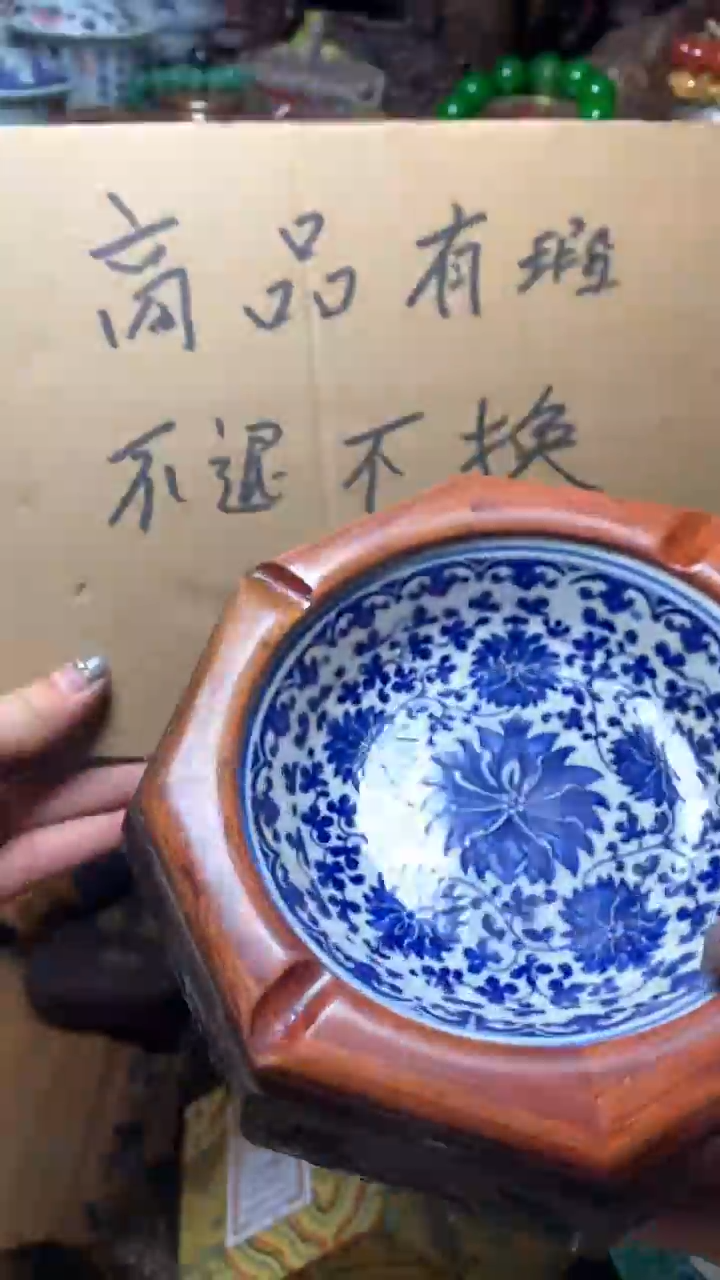 高品有瑕
不退不换